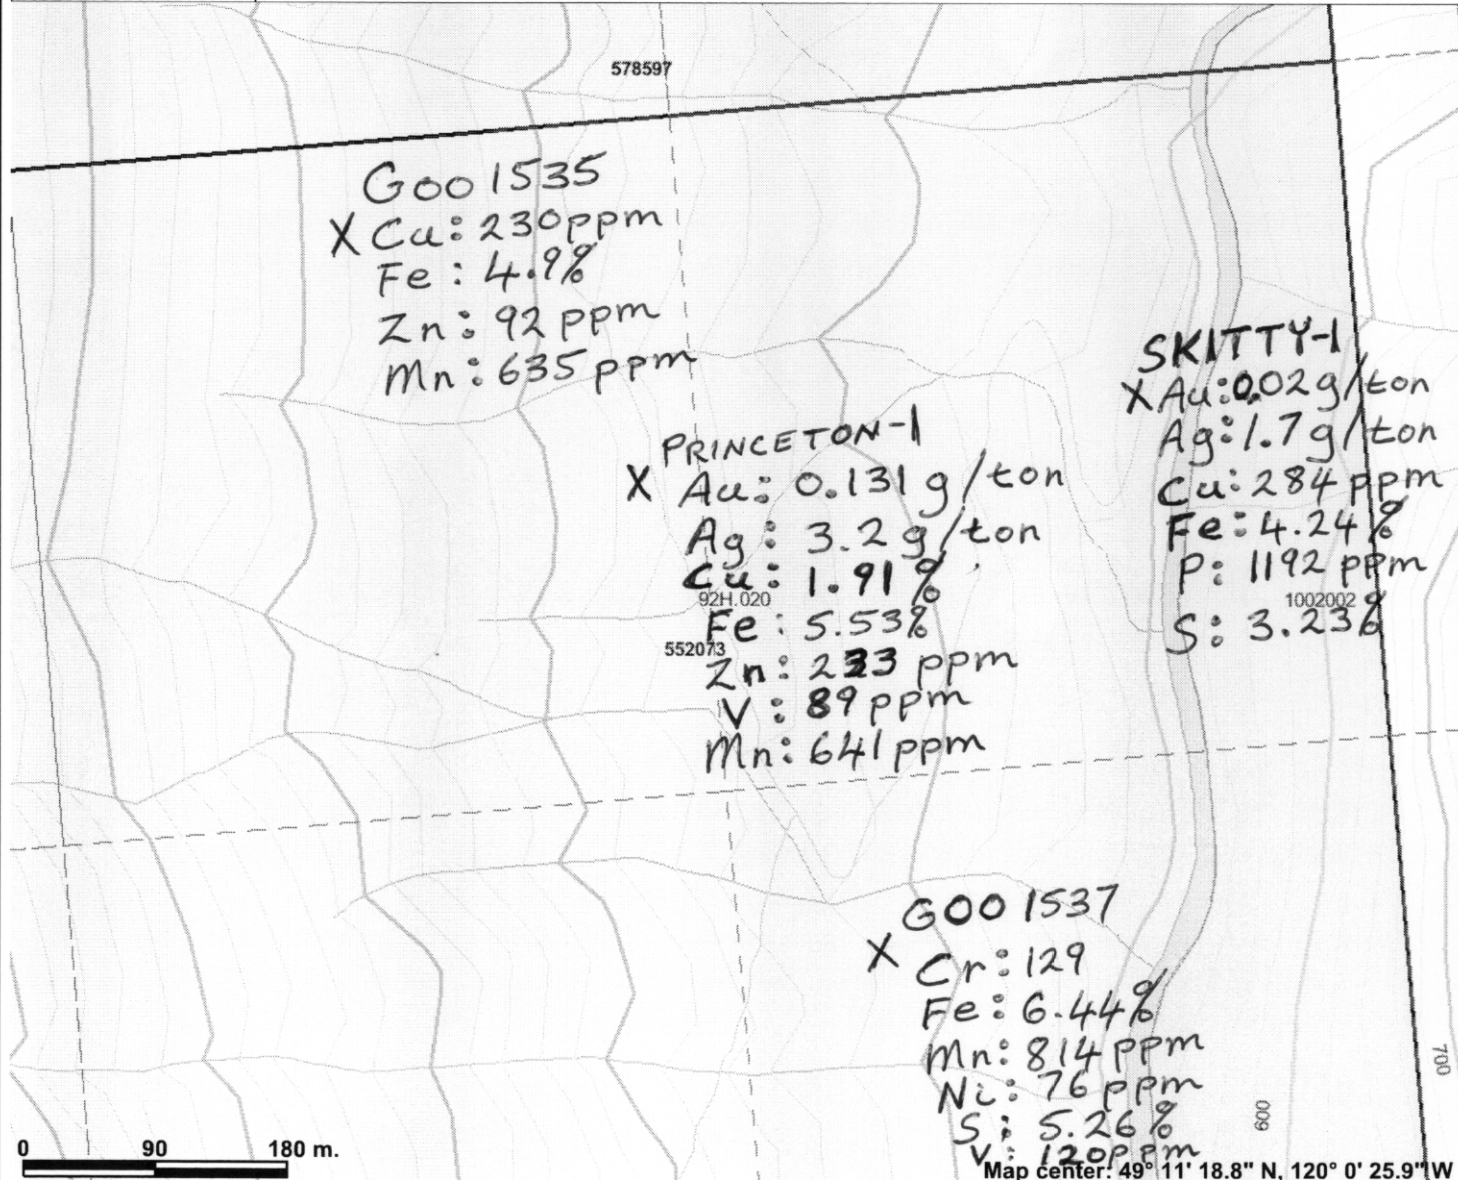 578597
Goo 1535
X Cu: 230ppm
Fe: 4.9%
Zn: 92 ppm
Mn: 635 ppm
SKITTY-1
X Au: 0.02g/ton
Ag: 1.7g/ton
Cu: 284 ppm
Fe: 4.24%
P: 1192 ppm
1002002
S: 3.23%
PRINCETON-1
X Au: 0.131 g/ton
Ag: 3.2 g/ton
Cu: 1.91%
92H.020
Fe: 5.53%
552073
Zn: 233 ppm
V: 89 ppm
Mn: 641 ppm
GOO 1537
X Cr: 129
Fe: 6.44%
Mn: 814 ppm
Ni: 76 ppm
S: 5.26%
V: 120ppm
700
600
0 90 180 m.
Map center: 49° 11' 18.8" N, 120° 0' 25.9" W